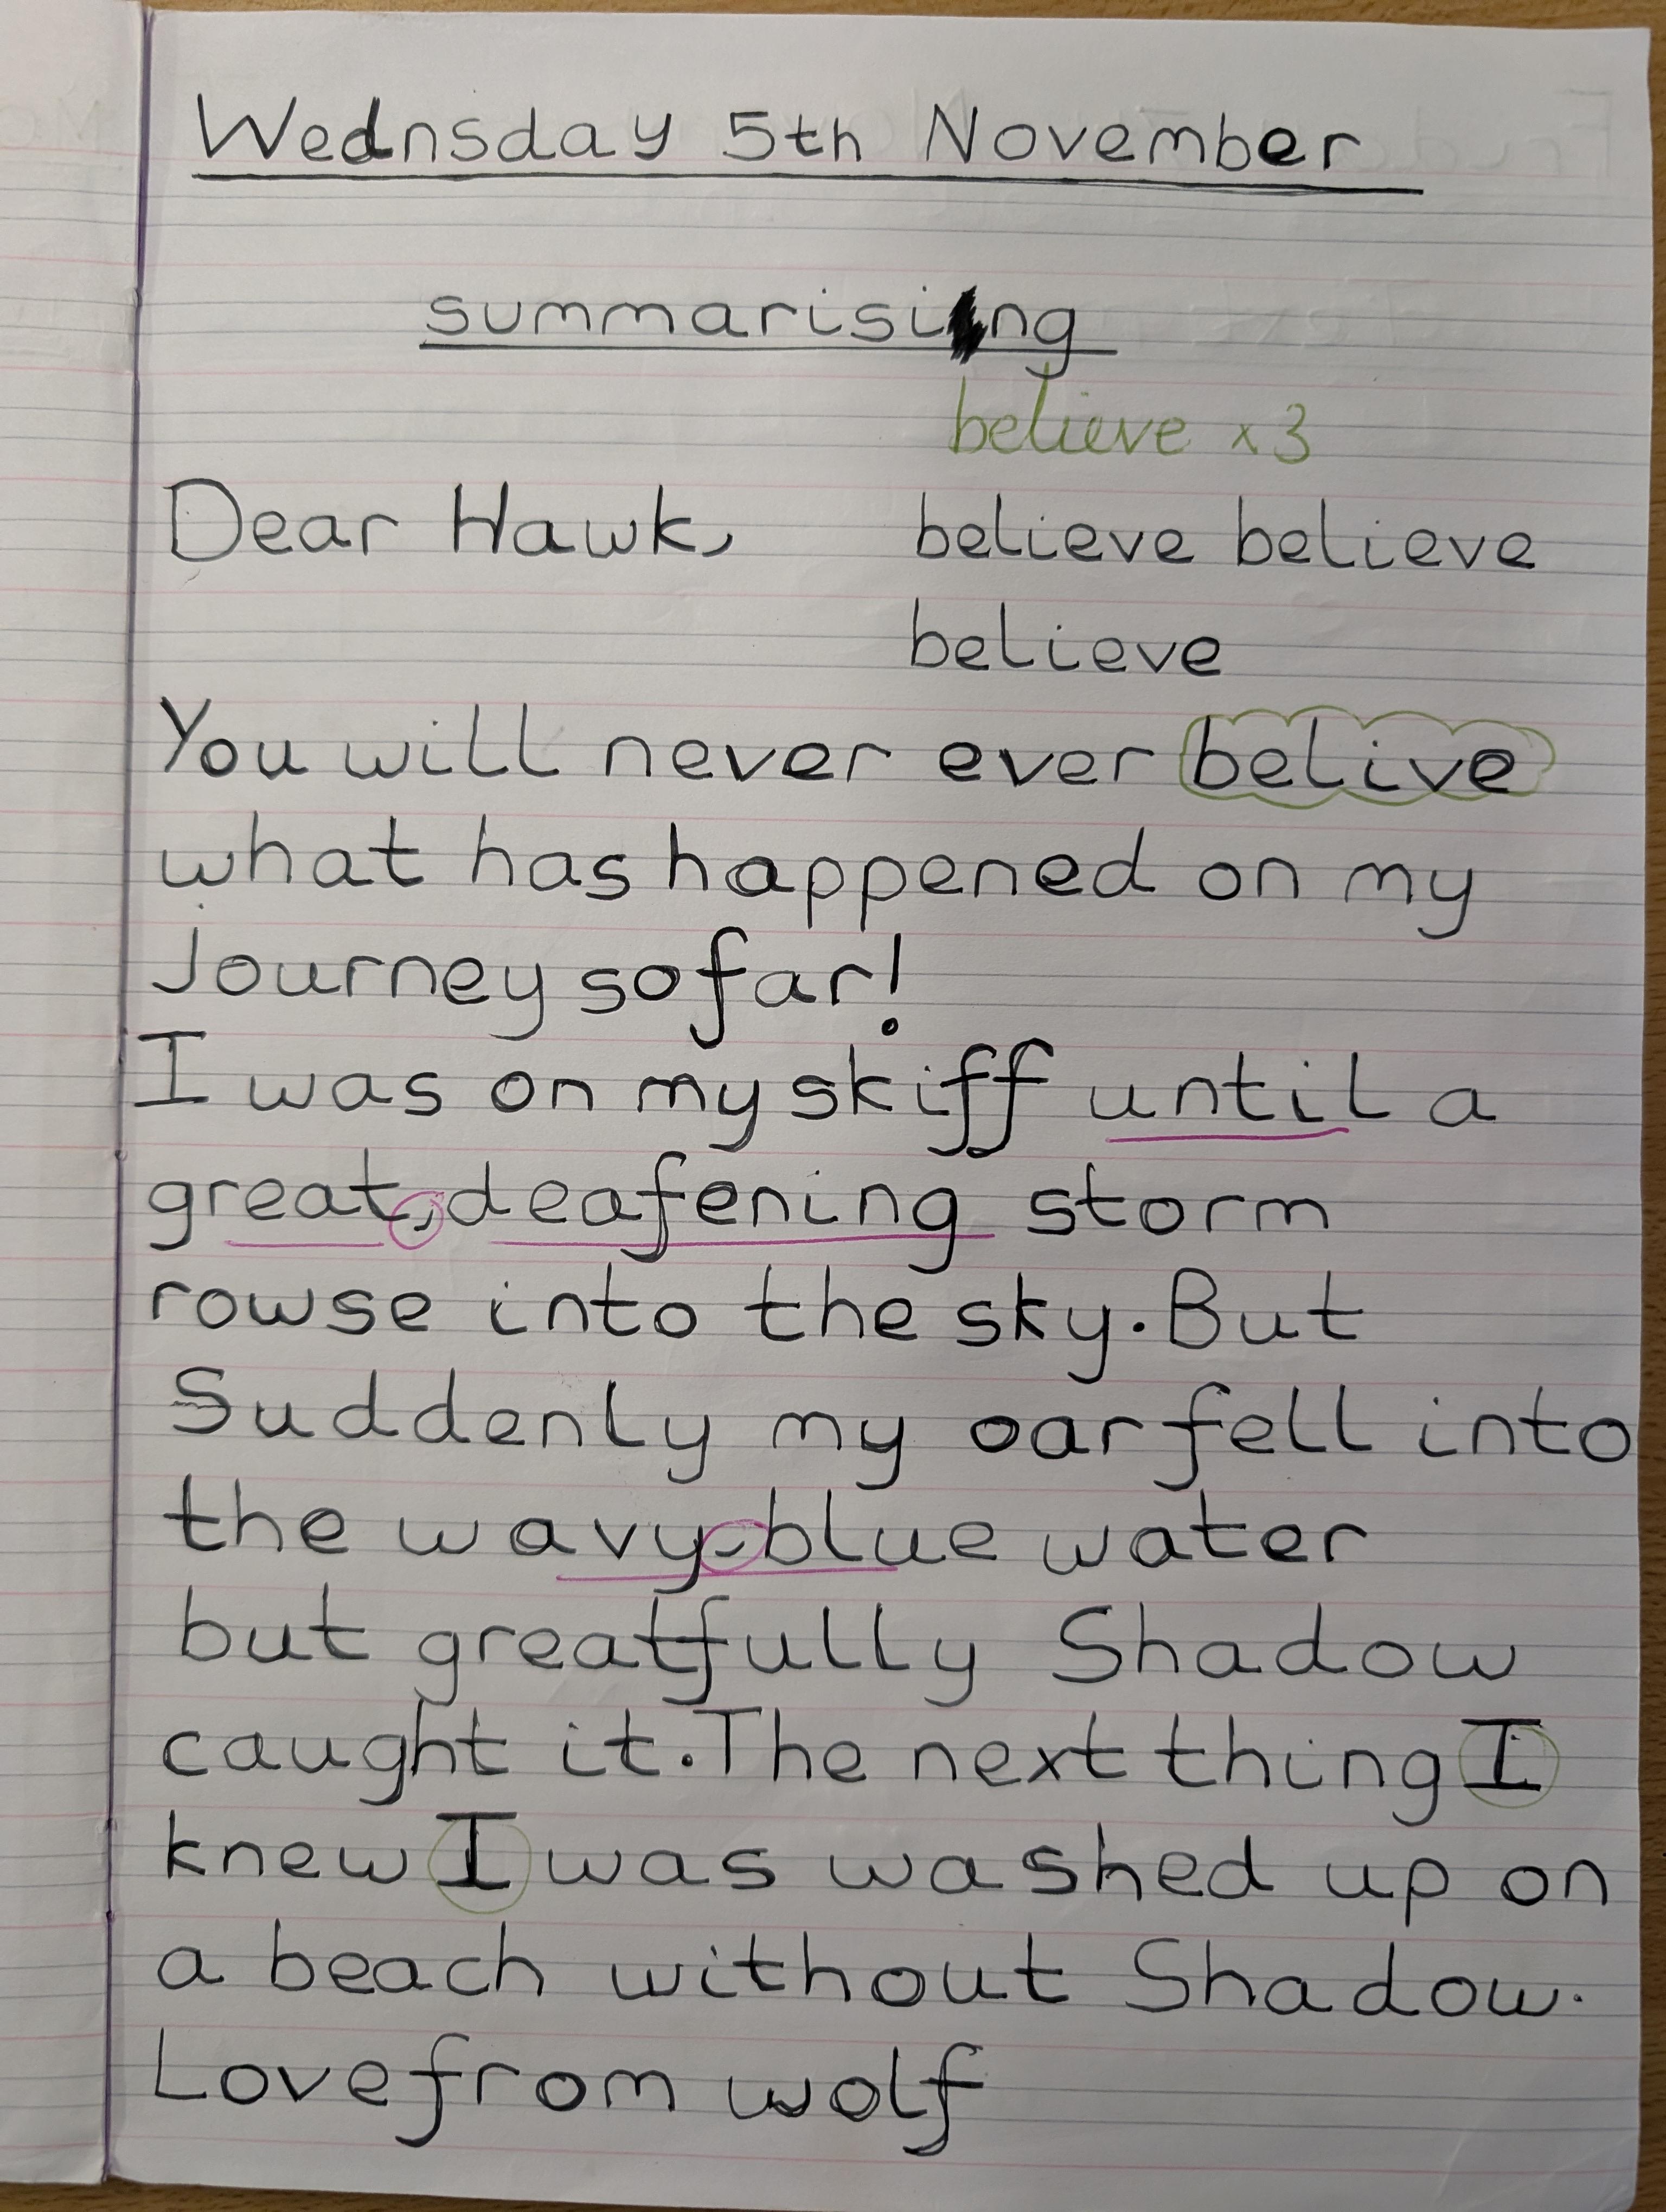 Wednsday 5th November
summarising
believe x3
Dear Hawk,
believe believe
believe
You will never ever belive
what has happened on my
Journey so far!
I was on my skiff until a
great, deafening storm
rowse into the sky. But
Suddenly my oar fell into
the wavy, blue water
but greatfully Shadow
caught it. The next thing I
knew I was washed up on
a beach without Shadow.
Love from wolf